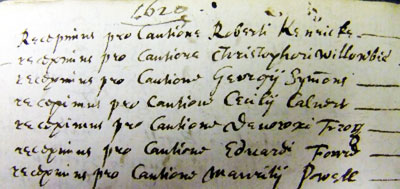 1620.
Recepimus pro Cautione Roberti Kenricke
recepimus pro Cautione Christophori Willowbie
recepimus pro Cautione Georgii Symons
recepimus pro Cautione Cecilij Calvert
recepimus pro Cautione
recepimus pro Cautione Eduardi
recepimus pro Cautione Mauritij Powell